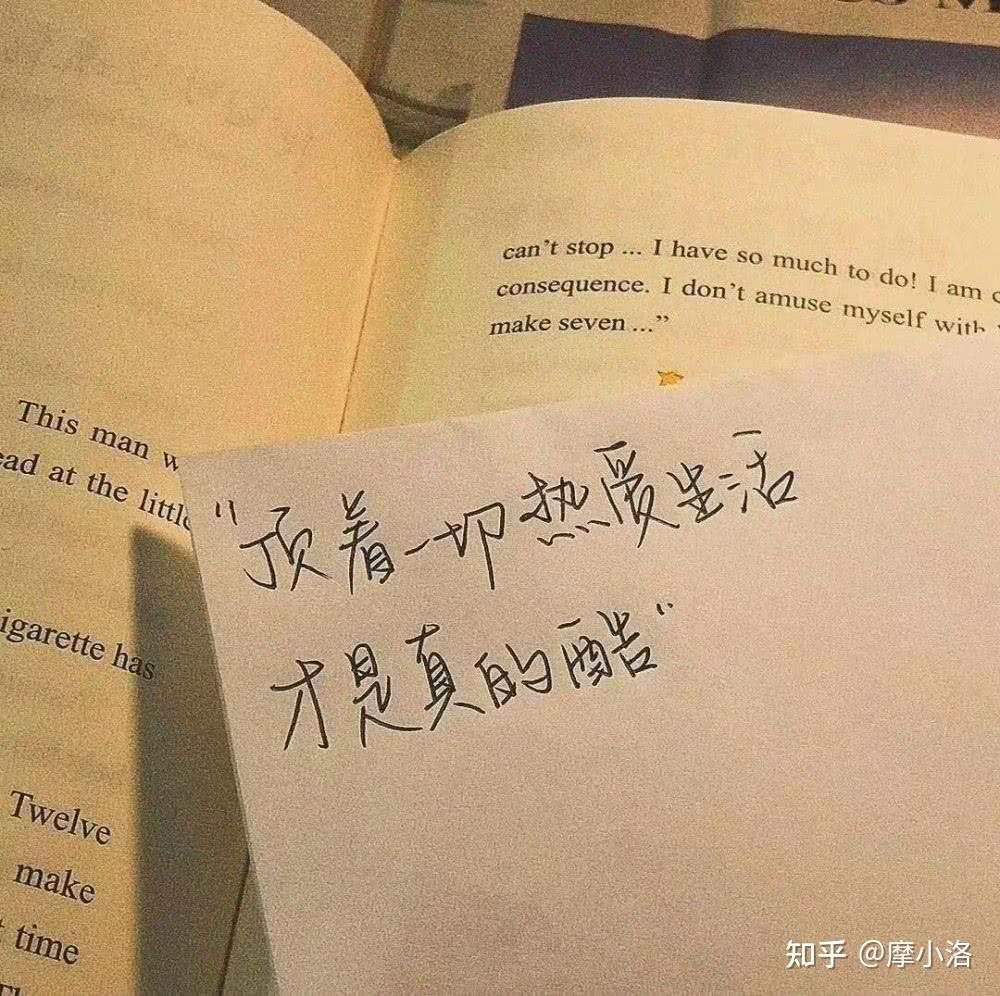 can't stop ... I have so much to do! I am
consequence. I don't amuse myself with
make seven ..."
This man
at the little
has
Twelve
make
time
"顶着一切热爱生活
才是真的酷"
知乎 @摩小洛